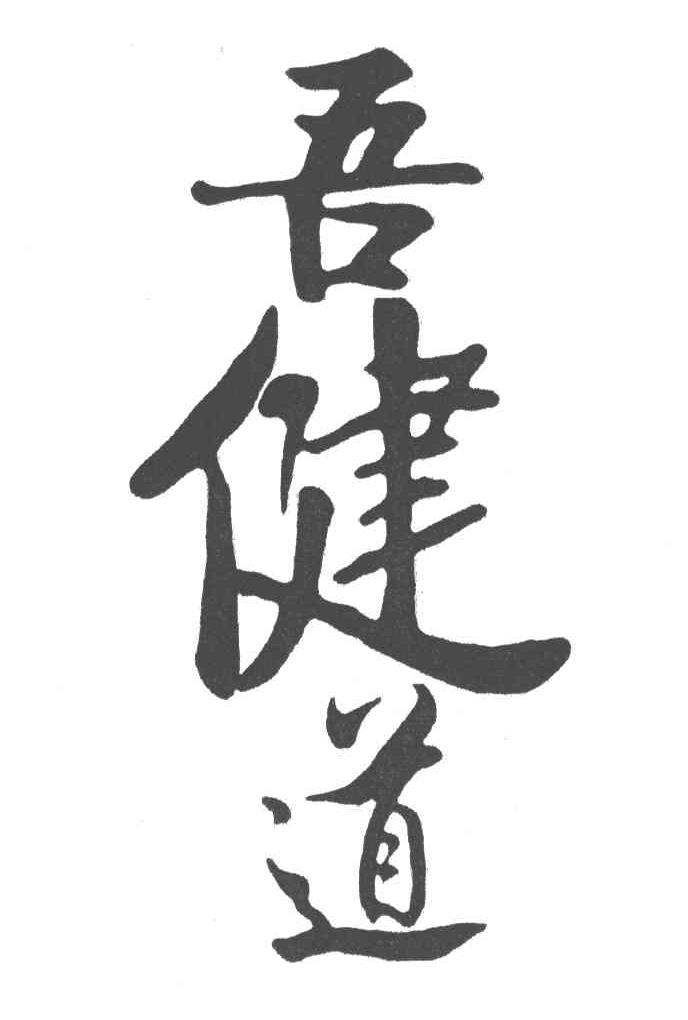 吾健道